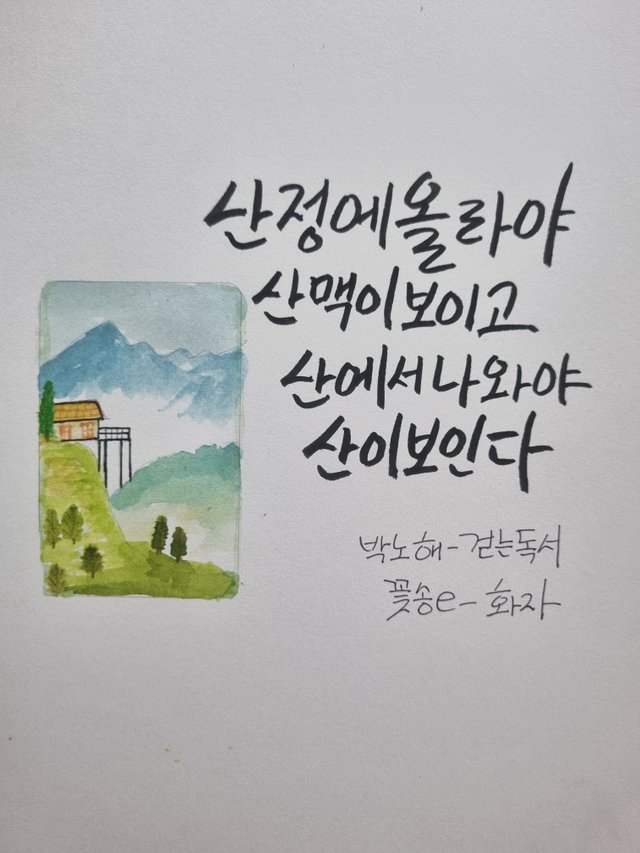 산정에올라야
산맥이보이고
산에서나와야
산이보인다
박노해-걷는독서
꽃송e-화자